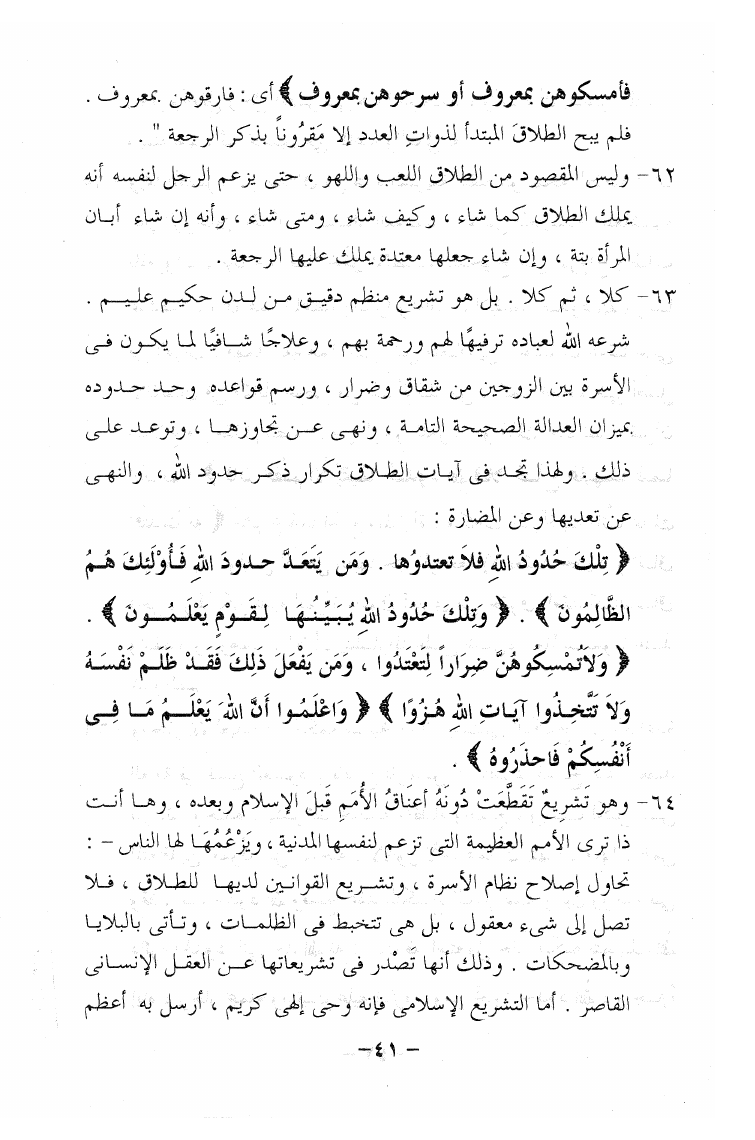 فأمسكوهن بمعروف أو سرحوهن بمعروف ﴾ أى : فارقوهن بمعروف .
فلم يبح الطلاقَ المبتدأ لذوات العدد إلا مَقرُوناً بذكر الرجعة " .
٦٢- وليس المقصود من الطلاق اللعب واللهو ، حتى يزعم الرجل لنفسه أنه
يملك الطلاق كما شاء ، وكيف شاء ، ومتى شاء ، وأنه إن شاء أبان
المرأة بتة ، وإن شاء جعلها معتدة يملك عليها الرجعة .
٦٣- كلا ، ثم كلا . بل هو تشريع منظم دقيق من لدن حكيم عليم .
شرعه الله لعباده ترفيهًا لهم ورحمة بهم ، وعلاجًا شافيًا لما يكون فى
الأسرة بين الزوجين من شقاق وضرار ، ورسم قواعده وحد حدوده
بميزان العدالة الصحيحة التامة ، ونهى عن تجاوزها ، وتوعد على
ذلك . ولهذا تجد فى آيات الطلاق تكرار ذكر حدود الله ، والنهى
عن تعديها وعن المضارة :
﴿ تِلْكَ حُدُودُ اللهِ فلاَ تعتدوُها . وَمَن يَتَعَدَّ حدودَ اللهِ فَأُوْلَئِكَ هُمُ
الظَّالِمُونَ ﴾ . ﴿ وَتِلْكَ حُدُودُ اللهِ يُبَيِّنُهَا لِقَوْمٍ يَعْلَمُونَ ﴾ .
﴿ وَلاَتُمْسِكُوهُنَّ ضِرَاراً لِتَعْتَدُوا ، وَمَن يَفْعَلَ ذَلِكَ فَقَدْ ظَلَمَ نَفْسَهُ
وَلاَ تَتَّخِذُوا آيَاتِ اللهِ هُزُوًا ﴾ ﴿ وَاعْلَمُوا أَنَّ اللهَ يَعْلَمُ مَا فِى
أَنْفُسِكُمْ فَاحذَرُوهُ ﴾ .
٦٤- وهو تَشريعٌ تَقَطَّعَتْ دُونَهُ أعناقُ الأُمَمِ قَبلَ الإسلام وبعده ، وها أنت
ذا ترى الأمم العظيمة التى تزعم لنفسها المدنية ، ويَزْعُمُهَا لها الناس - :
تحاول إصلاح نظام الأسرة ، وتشريع القوانين لديها للطلاق ، فلا
تصل إلى شىء معقول ، بل هى تتخبط فى الظلمات ، وتأتى بالبلايا
وبالمضحكات . وذلك أنها تَصْدر فى تشريعاتها عن العقل الإنسانى
القاصر . أما التشريع الإسلامى فإنه وحى إلهى كريم ، أرسل به أعظم
- ٤١-